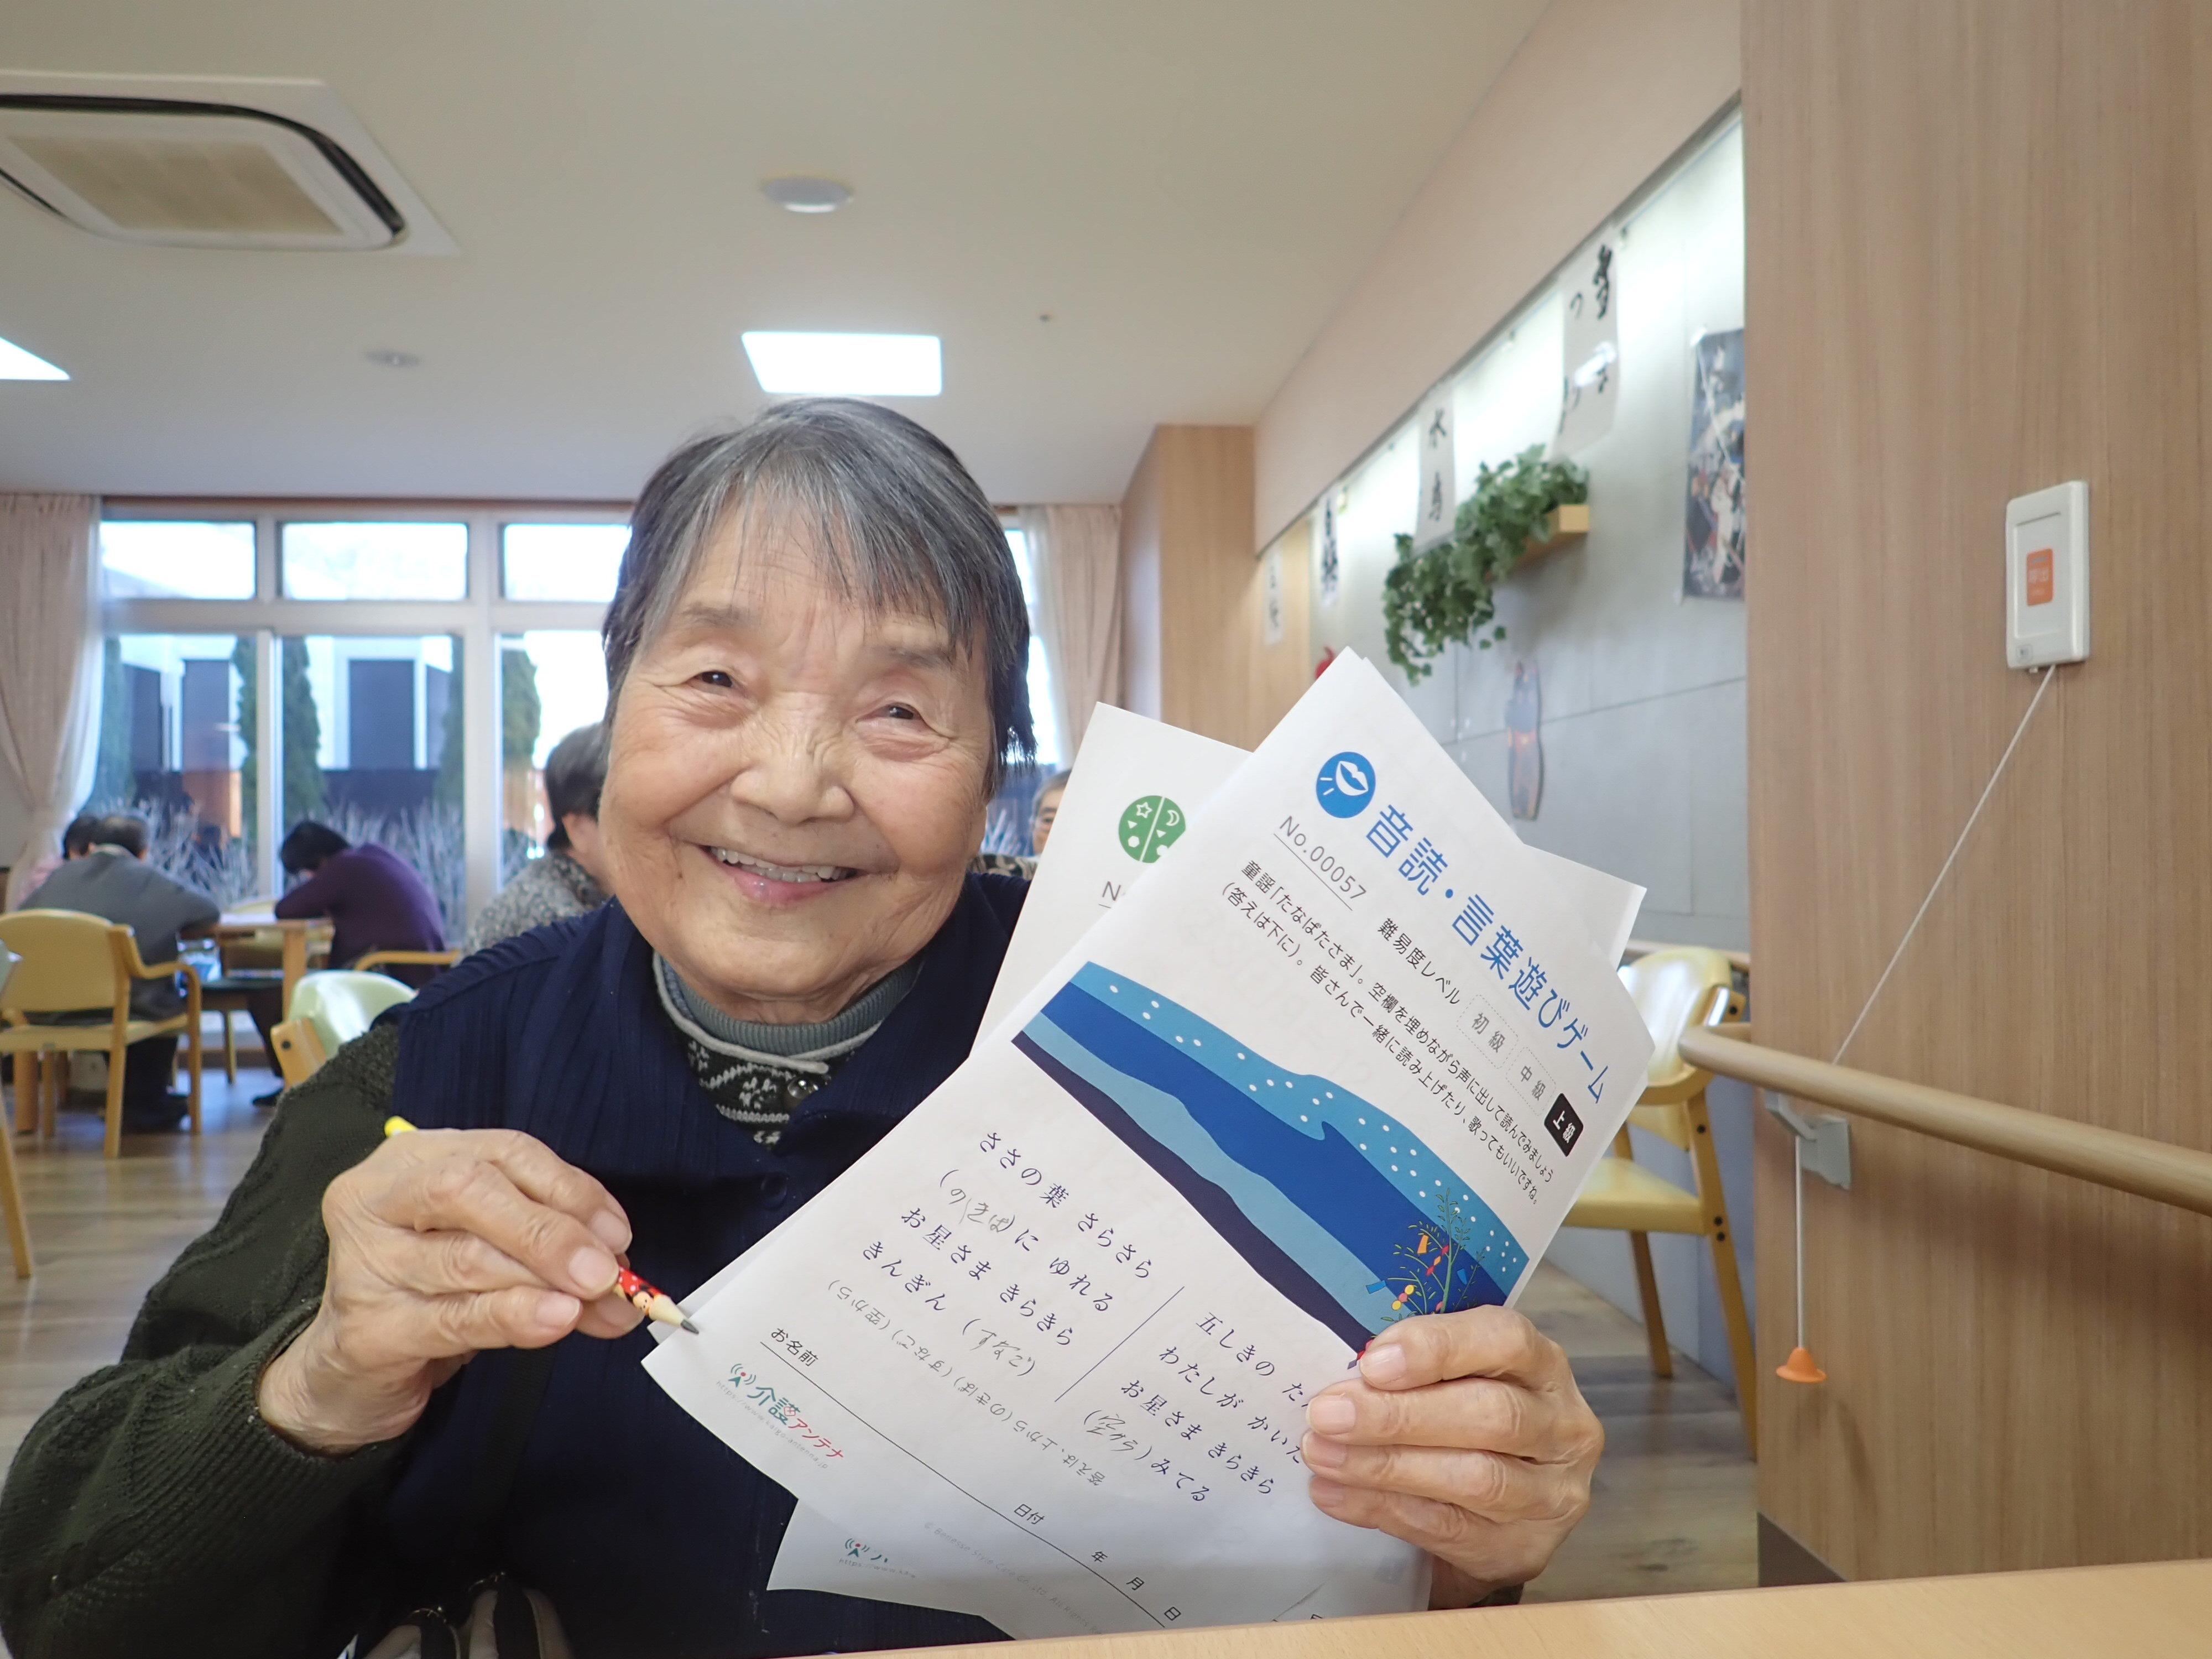 音読・言葉遊びゲーム
No.00057
難易度レベル 初級 中級 上級
童謡「たなばたさま」。空欄を埋めながら声に出して読んでみましょう
(答えは下に)。皆さんで一緒に読み上げたり、歌ってもいいですね。
ささの葉 さらさら
(のきば)に ゆれる
お星さま きらきら
きんぎん (すなご)
五しきの たん
わたしが かいた
お星さま きらきら
(空から)みてる
答えは、上から(のきば)(すなご)(空から)
お名前
日付 年 月 日
介護アンテナ
N
呼出